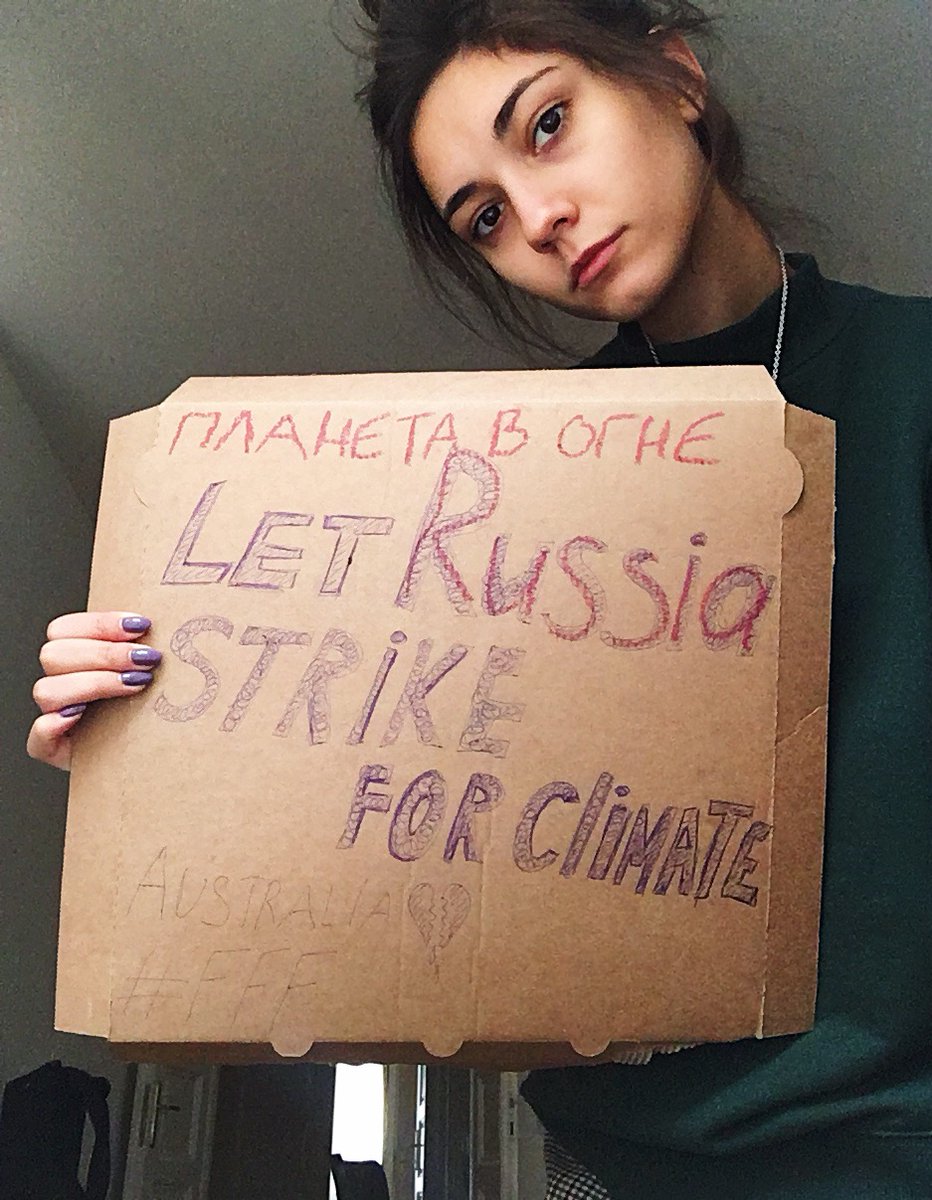 ПЛАНЕТА В ОГНЕ
LET RUSSiA
STRiKE
FOR CliMATE
AUSTRALIA
#FFF